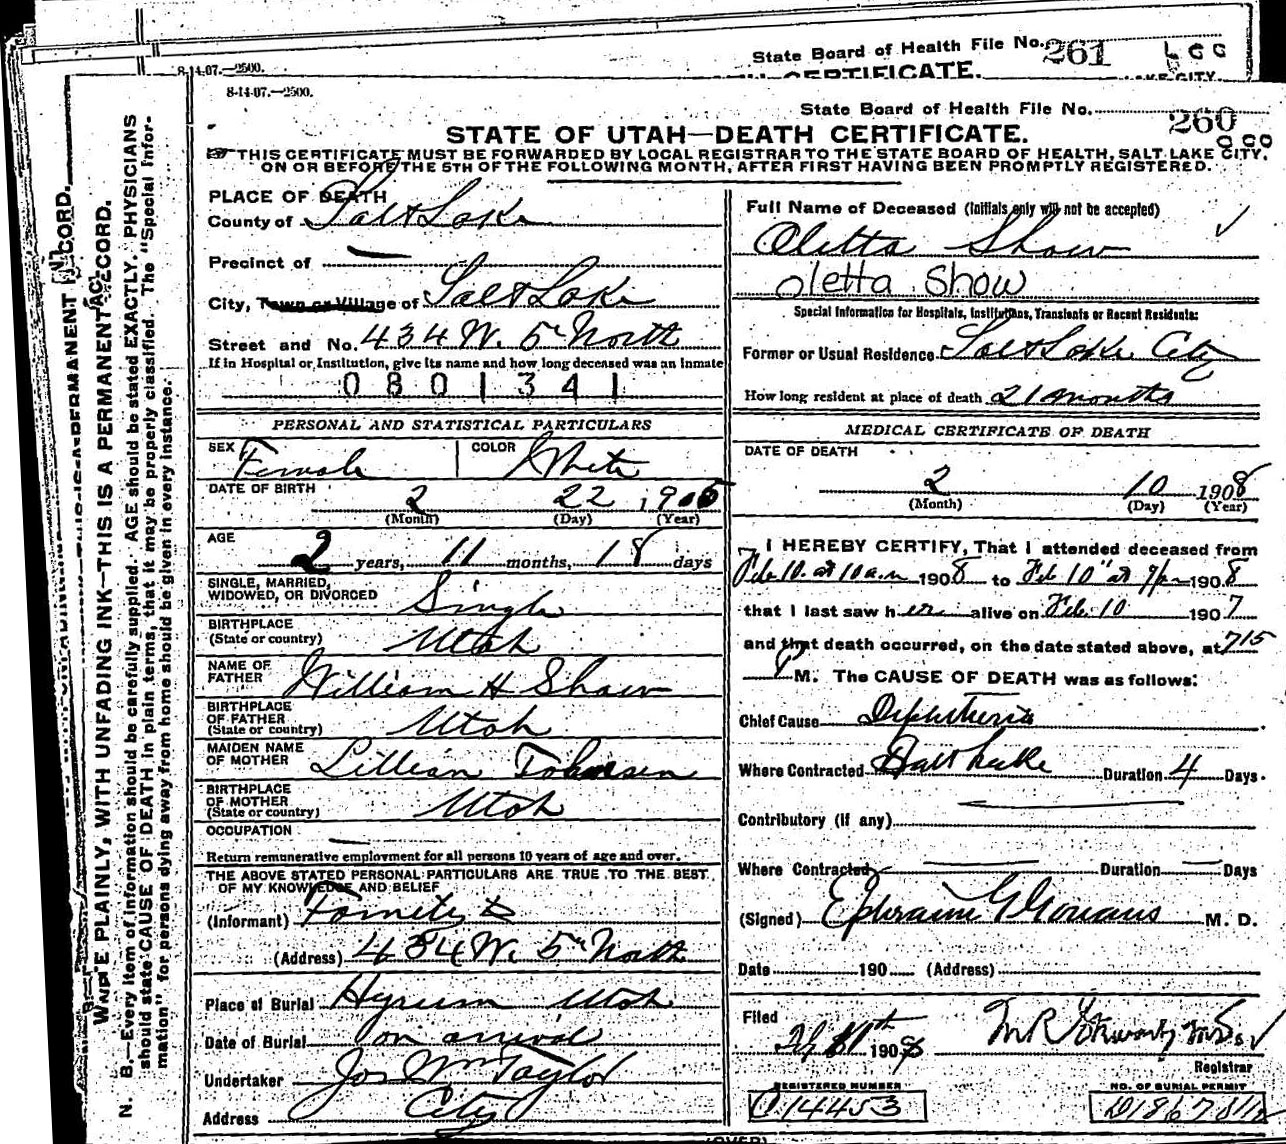 State Board of Health File No. 261
8-14-07.—2500.
CERTIFICATE.
8-14-07.—2500.
State Board of Health File No. 260
STATE OF UTAH—DEATH CERTIFICATE.
THIS CERTIFICATE MUST BE FORWARDED BY LOCAL REGISTRAR TO THE STATE BOARD OF HEALTH, SALT LAKE CITY,
ON OR BEFORE THE 5TH OF THE FOLLOWING MONTH, AFTER FIRST HAVING BEEN PROMPTLY REGISTERED.
N. B.—Every item of information should be carefully supplied. AGE should be stated EXACTLY. PHYSICIANS
should state CAUSE OF DEATH in plain terms, that it may be properly classified. The "Special Infor-
mation" for persons dying away from home should be given in every instance.
PLAINLY, WITH UNFADING INK—THIS IS A PERMANENT RECORD.
PLACE OF DEATH
County of Salt Lake
Precinct of —
City, Town or Village of Salt Lake
Street and No. 434 W. 5th North
If in Hospital or Institution, give its name and how long deceased was an inmate
0801341
PERSONAL AND STATISTICAL PARTICULARS
SEX Female COLOR White
DATE OF BIRTH 2 22 1905
(Month) (Day) (Year)
AGE 2 years, 11 months, 18 days
SINGLE, MARRIED,
WIDOWED, OR DIVORCED Single
BIRTHPLACE
(State or country) Utah
NAME OF
FATHER William H Shaw
BIRTHPLACE
OF FATHER
(State or country) Utah
MAIDEN NAME
OF MOTHER Lillian Johnson
BIRTHPLACE
OF MOTHER
(State or country) Utah
OCCUPATION —
Return remunerative employment for all persons 10 years of age and over.
THE ABOVE STATED PERSONAL PARTICULARS ARE TRUE TO THE BEST
OF MY KNOWLEDGE AND BELIEF
(Informant)
(Address) 434 W. 5th North
Place of Burial Hyrum Utah
Date of Burial on arrival
Undertaker Jos Wm Taylor
Address City
Full Name of Deceased (Initials only will not be accepted)
Oletta Shaw
Oletta Show
Special Information for Hospitals, Institutions, Transients or Recent Residents:
Former or Usual Residence Salt Lake City
How long resident at place of death 21 months
MEDICAL CERTIFICATE OF DEATH
DATE OF DEATH
2 10 1908
(Month) (Day) (Year)
I HEREBY CERTIFY, That I attended deceased from
Feb 10. at 10 a.m 1908 to Feb 10" at 7 pm 1908
that I last saw her alive on Feb. 10 1907
and that death occurred, on the date stated above, at 715
P M. The CAUSE OF DEATH was as follows:
Chief Cause Diphtheria
Where Contracted Salt Lake Duration 4 Days.
Contributory (if any)
Where Contracted — Duration — Days
(Signed) Ephraim G Gowans M. D.
Date 190 (Address)
Filed
11th 1908
Registrar
REGISTERED NUMBER NO. OF BURIAL PERMIT
14453
(OVER)